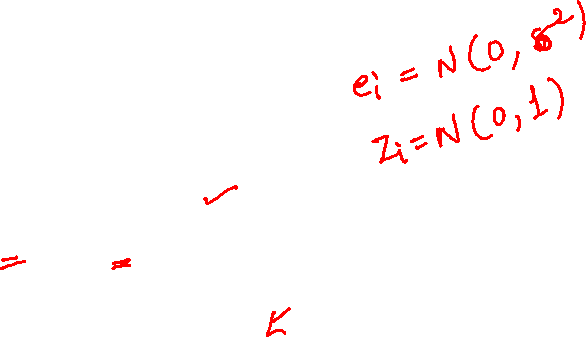 ei = N(0, σ²)
Zi = N(0, 1)
✓
= =